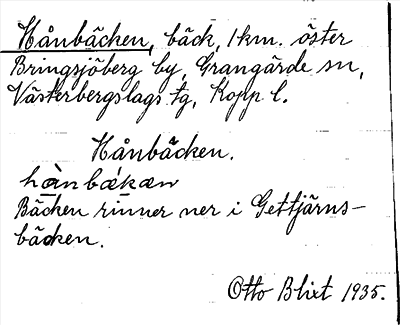 Hånbäcken, bäck, 1 km. öster
Bringsjöberg by, Grangärde sn,
Västerbergslags tg, Kopp l.
Hånbäcken.
hànbǽkæn
Bäcken rinner ner i Gettjärns-
bäcken.
Otto Blixt 1935.